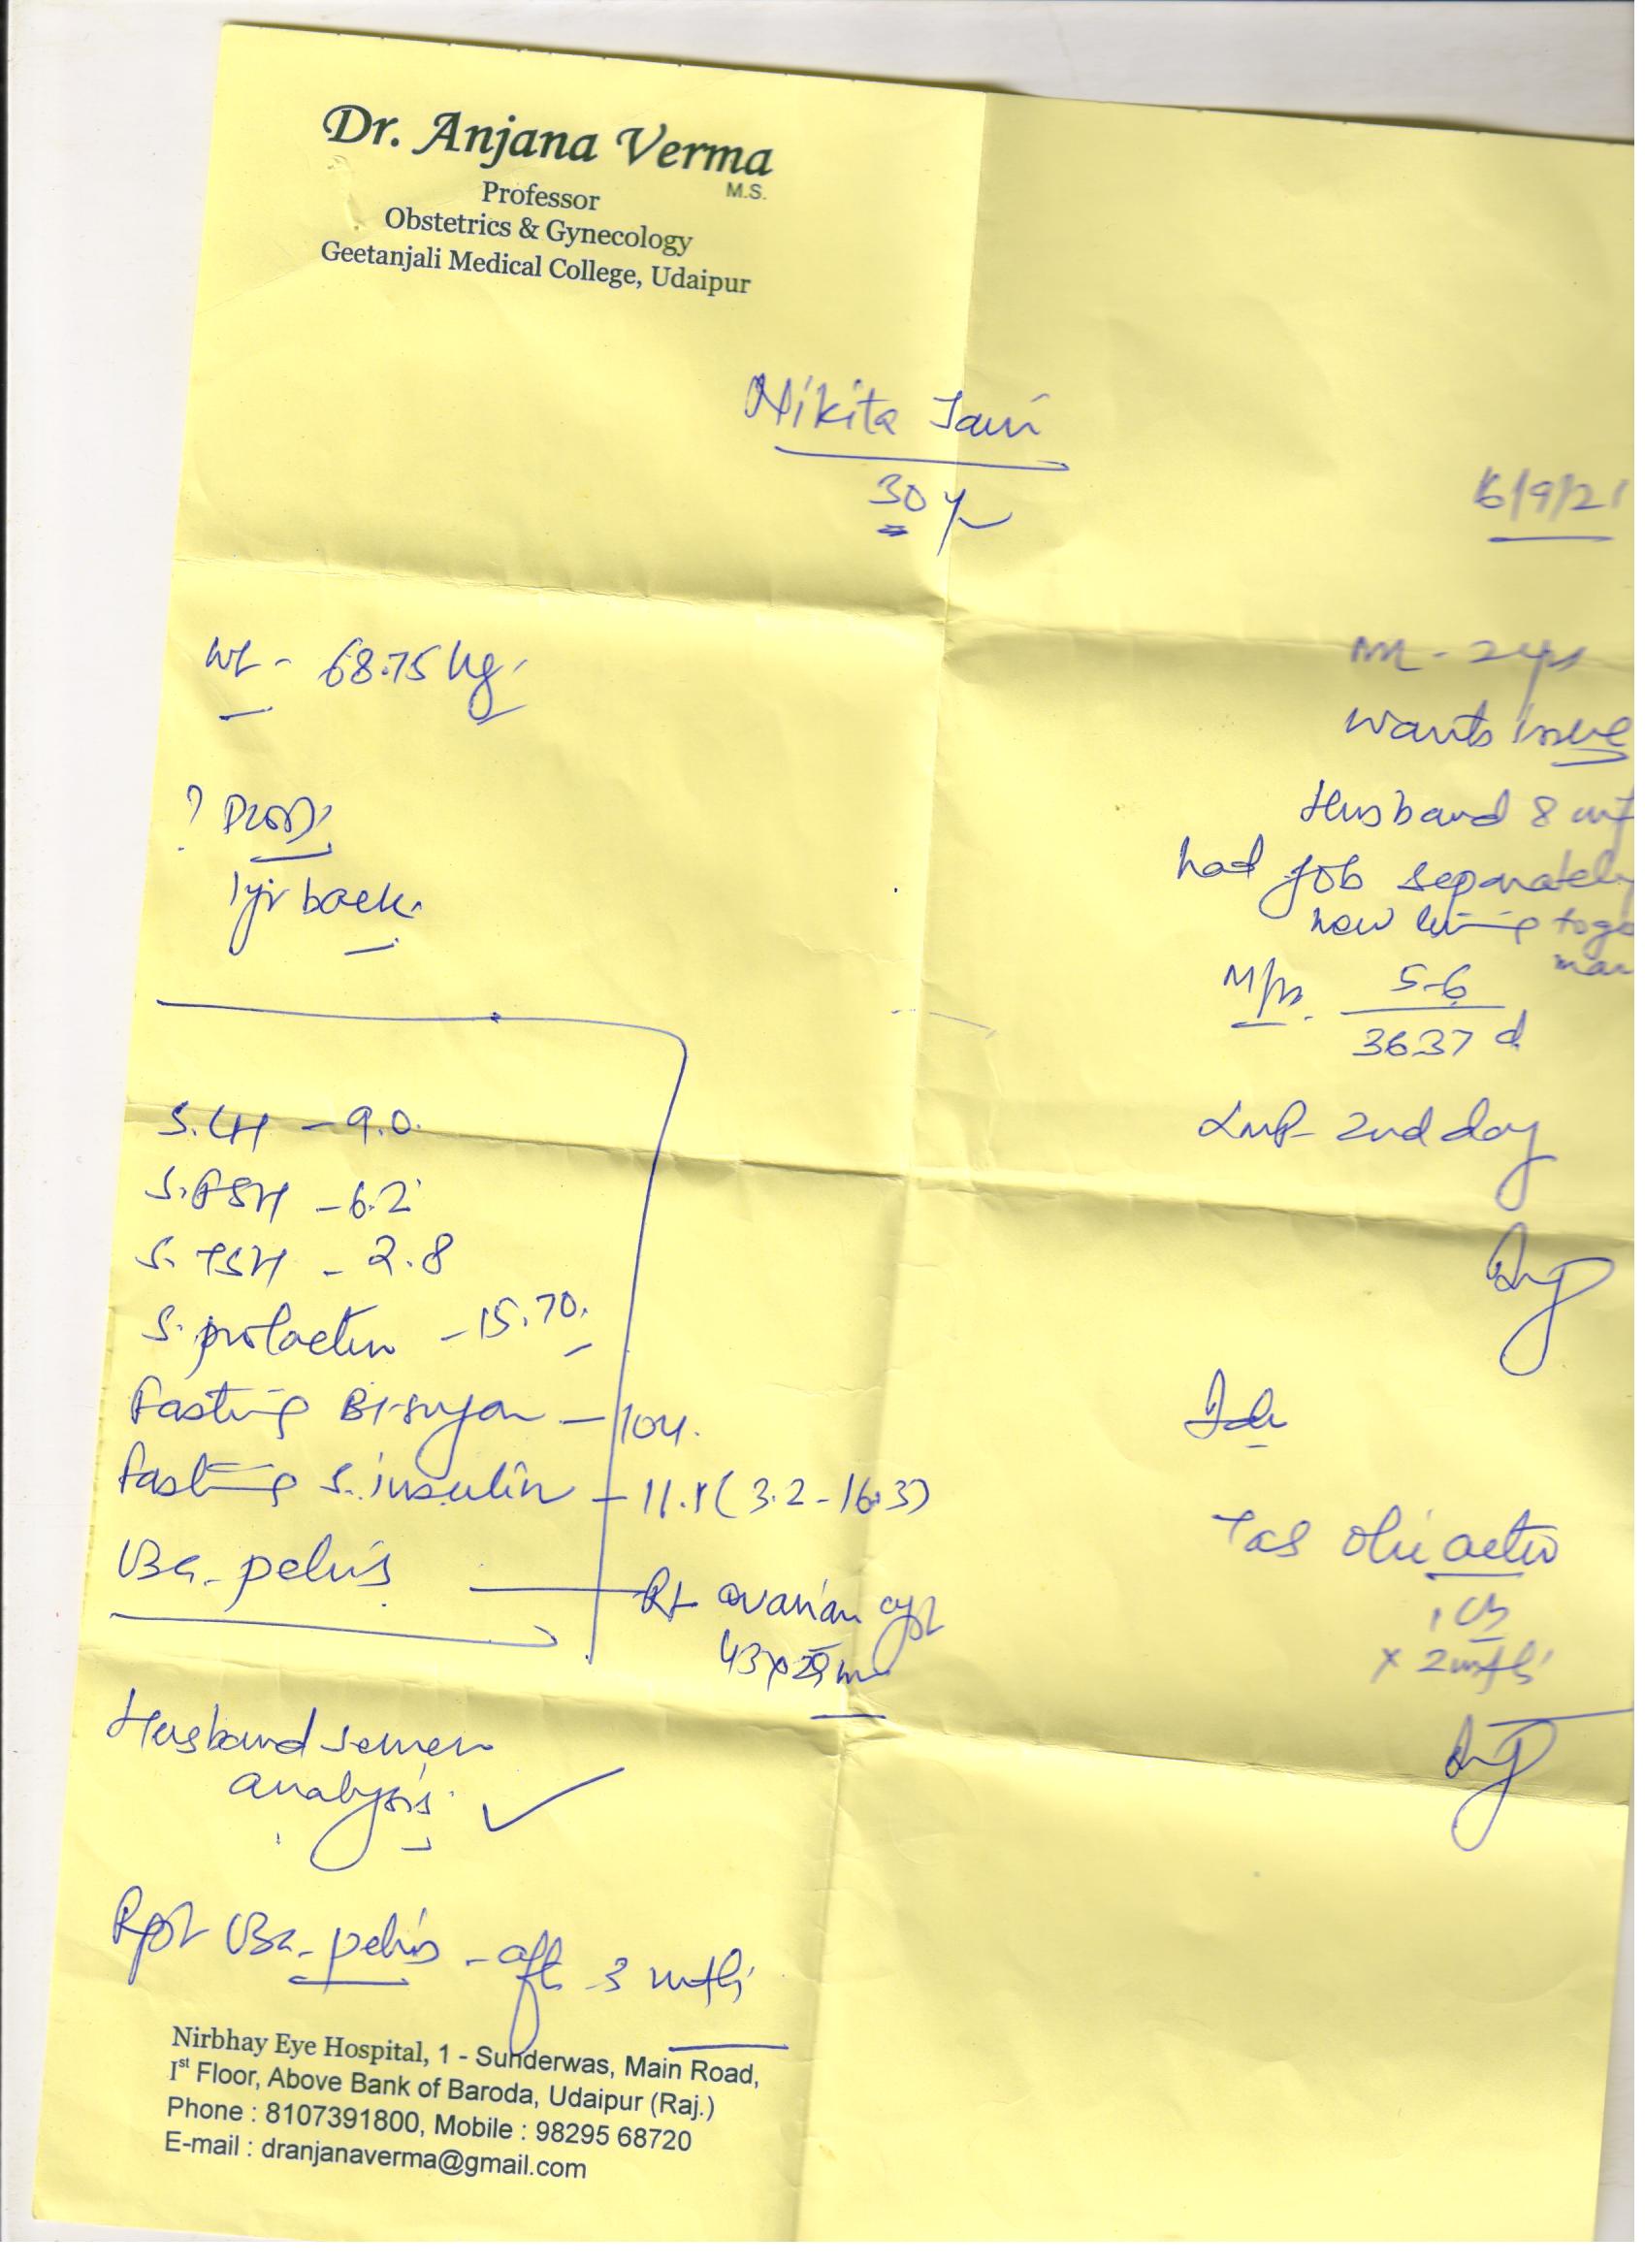 Dr. Anjana Verma
M.S.
Professor
Obstetrics & Gynecology
Geetanjali Medical College, Udaipur
Nikita Jain
30 y
6/9/21
Wt - 68.75 kg.
? PCOD
1 yr back.
S. LH - 9.0
S. FSH - 6.2
S. TSH - 2.8
S. prolactin - 15.70
Fasting Bl. sugar - 104.
Fasting S. insulin - 11.1 (3.2 - 16.3)
USG. pelvis Rt ovarian cyst
Husband semen
analysis ✓
Rpt USG. pelvis - aft 3 mth
- 2 yrs
wants issue
Husband 8
had job separately
now living
5-6
36-37 d
LMP - 2nd day
Adv
Tab
x 2 mth
Nirbhay Eye Hospital, 1 - Sunderwas, Main Road,
Ist Floor, Above Bank of Baroda, Udaipur (Raj.)
Phone : 8107391800, Mobile : 98295 68720
E-mail : dranjanaverma@gmail.com